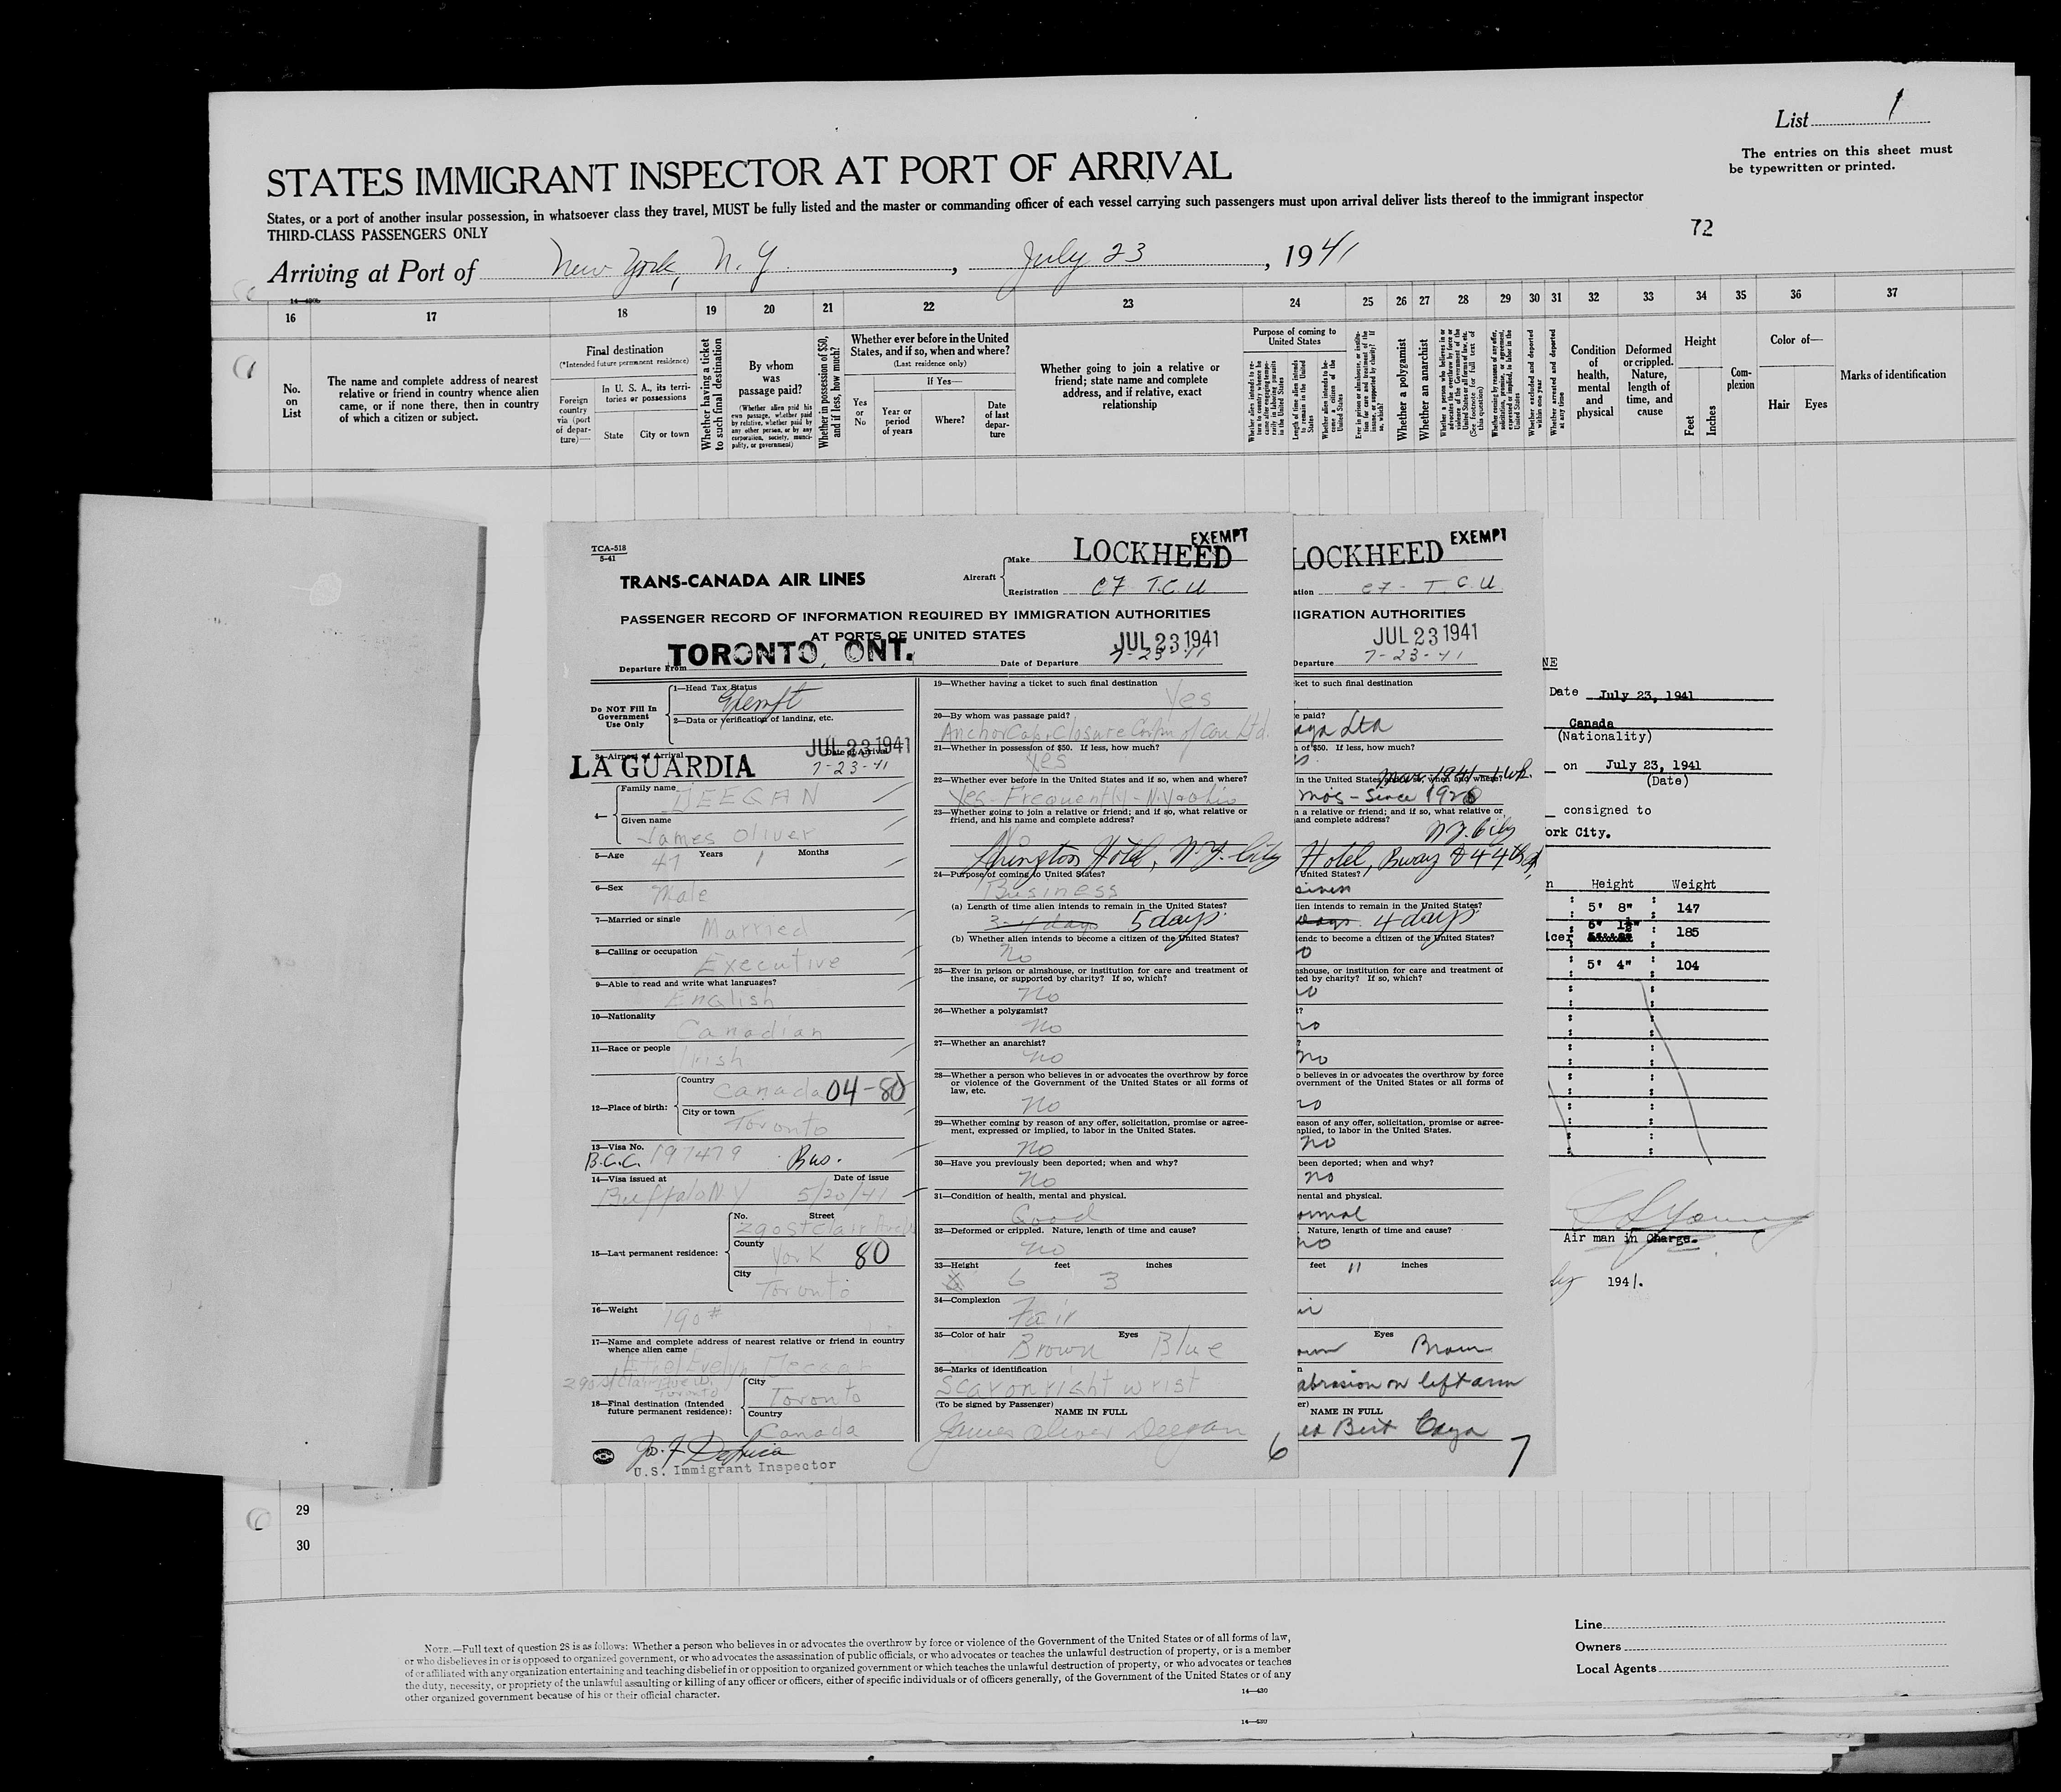 List 1
The entries on this sheet must
be typewritten or printed.
STATES IMMIGRANT INSPECTOR AT PORT OF ARRIVAL
States, or a port of another insular possession, in whatsoever class they travel, MUST be fully listed and the master or commanding officer of each vessel carrying such passengers must upon arrival deliver lists thereof to the immigrant inspector
THIRD-CLASS PASSENGERS ONLY
72
Arriving at Port of New York, N.Y. , July 23 , 1941
16 17 18 19 20 21 22 23 24 25 26 27 28 29 30 31 32 33 34 35 36 37
No. on List
The name and complete address of nearest relative or friend in country whence alien came, or if none there, then in country of which a citizen or subject.
Final destination
(*Intended future permanent residence)
Foreign country via (port of departure)—
In U. S. A., its territories or possessions
State City or town
Whether having a ticket to such final destination
By whom was passage paid?
(Whether alien paid his own passage, whether paid by relative, whether paid by any other person, or by any corporation, society, municipality, or government)
Whether in possession of $50, and if less, how much?
Whether ever before in the United States, and if so, when and where?
(Last residence only)
Yes or No
If Yes—
Year or period of years
Where?
Date of last departure
Whether going to join a relative or friend; state name and complete address, and if relative, exact relationship
Purpose of coming to United States
Whether a polygamist
Whether an anarchist
Condition of health, mental and physical
Deformed or crippled. Nature, length of time, and cause
Height
Feet Inches
Complexion
Color of—
Hair Eyes
Marks of identification
TCA-518
5-41
TRANS-CANADA AIR LINES
Aircraft
Make LOCKHEED
EXEMPT
Registration CF T.C.U.
PASSENGER RECORD OF INFORMATION REQUIRED BY IMMIGRATION AUTHORITIES
AT PORTS OF UNITED STATES
Departure From TORONTO, ONT.
Date of Departure 7-23-41
JUL 23 1941
Do NOT Fill In
Government
Use Only
1—Head Tax Status Exempt
2—Data or verification of landing, etc.
3—Airport of Arrival LA GUARDIA
Date of Arrival JUL 23 1941
7-23-41
4—
Family name DEEGAN
Given name James Oliver
5—Age 47 Years 1 Months
6—Sex Male
7—Married or single Married
8—Calling or occupation Executive
9—Able to read and write what languages? English
10—Nationality Canadian
11—Race or people Irish
12—Place of birth:
Country Canada 04-80
City or town Toronto
13—Visa No. B.C.C. 197479 Bus.
14—Visa issued at Buffalo N.Y Date of issue 5/20/41
15—Last permanent residence:
No. Street 290 St Clair Ave W
County York 80
City Toronto
16—Weight 190#
17—Name and complete address of nearest relative or friend in country
whence alien came
Ethel Evelyn Deegan
290 St Clair Ave W.
Toronto
18—Final destination (Intended
future permanent residence):
City Toronto
Country Canada
U.S. Immigrant Inspector
19—Whether having a ticket to such final destination Yes
20—By whom was passage paid?
Anchor Cap & Closure Corp'n of Can Ltd.
21—Whether in possession of $50. If less, how much?
Yes
22—Whether ever before in the United States and if so, when and where?
Yes - Frequently - N.Y & Ohio
23—Whether going to join a relative or friend; and if so, what relative or
friend, and his name and complete address?
Hotel, N.Y. City
24—Purpose of coming to United States?
Business
(a) Length of time alien intends to remain in the United States?
3-4 days 5 days
(b) Whether alien intends to become a citizen of the United States?
No
25—Ever in prison or almshouse, or institution for care and treatment of
the insane, or supported by charity? If so, which?
No
26—Whether a polygamist?
No
27—Whether an anarchist?
No
28—Whether a person who believes in or advocates the overthrow by force
or violence of the Government of the United States or all forms of
law, etc.
No
29—Whether coming by reason of any offer, solicitation, promise or agree-
ment, expressed or implied, to labor in the United States.
No
30—Have you previously been deported; when and why?
No
31—Condition of health, mental and physical.
Good
32—Deformed or crippled. Nature, length of time and cause?
No
33—Height 6 feet 3 inches
34—Complexion Fair
35—Color of hair Brown Eyes Blue
36—Marks of identification
Scar on right wrist
(To be signed by Passenger)
NAME IN FULL
James Oliver Deegan
6
LOCKHEED EXEMPT
ation CF - T.C.U
IGRATION AUTHORITIES
JUL 23 1941
Departure 7-23-41
ket to such final destination
e paid?
aya Ltd
n of $50. If less, how much?
in the United States and if so, when and where?
Mar. 1941 - 1 wk.
mos - Since 1920
n a relative or friend; and if so, what relative or
and complete address?
N.Y. City
Hotel, Bway & 44th St.
United States?
siness
lien intends to remain in the United States?
days. 4 days
tends to become a citizen of the United States?
o
shouse, or institution for care and treatment of
ted by charity? If so, which?
no
?
no
?
no
o believes in or advocates the overthrow by force
overnment of the United States or all forms of
no
eason of any offer, solicitation, promise or agree-
nplied, to labor in the United States.
no
been deported; when and why?
no
nental and physical.
ormal
Nature, length of time and cause?
no
feet 11 inches
ir
Eyes
own Brown
abrasion on left arm
er)
NAME IN FULL
Bert Caya
7
NE
Date July 23, 1941
Canada
(Nationality)
on July 23, 1941
(Date)
consigned to
ork City.
n Height Weight
5' 8" 147
icer 6' 1½" 185
5' 4" 104
Air man in Charge.
ly 1941.
29
30
NOTE.—Full text of question 28 is as follows: Whether a person who believes in or advocates the overthrow by force or violence of the Government of the United States or of all forms of law,
or who disbelieves in or is opposed to organized government, or who advocates the assassination of public officials, or who advocates or teaches the unlawful destruction of property, or is a member
of or affiliated with any organization entertaining and teaching disbelief in or opposition to organized government or which teaches the unlawful destruction of property, or who advocates or teaches
the duty, necessity, or propriety of the unlawful assaulting or killing of any officer or officers, either of specific individuals or of officers generally, of the Government of the United States or of any
other organized government because of his or their official character.
14—430
14—430
Line
Owners
Local Agents